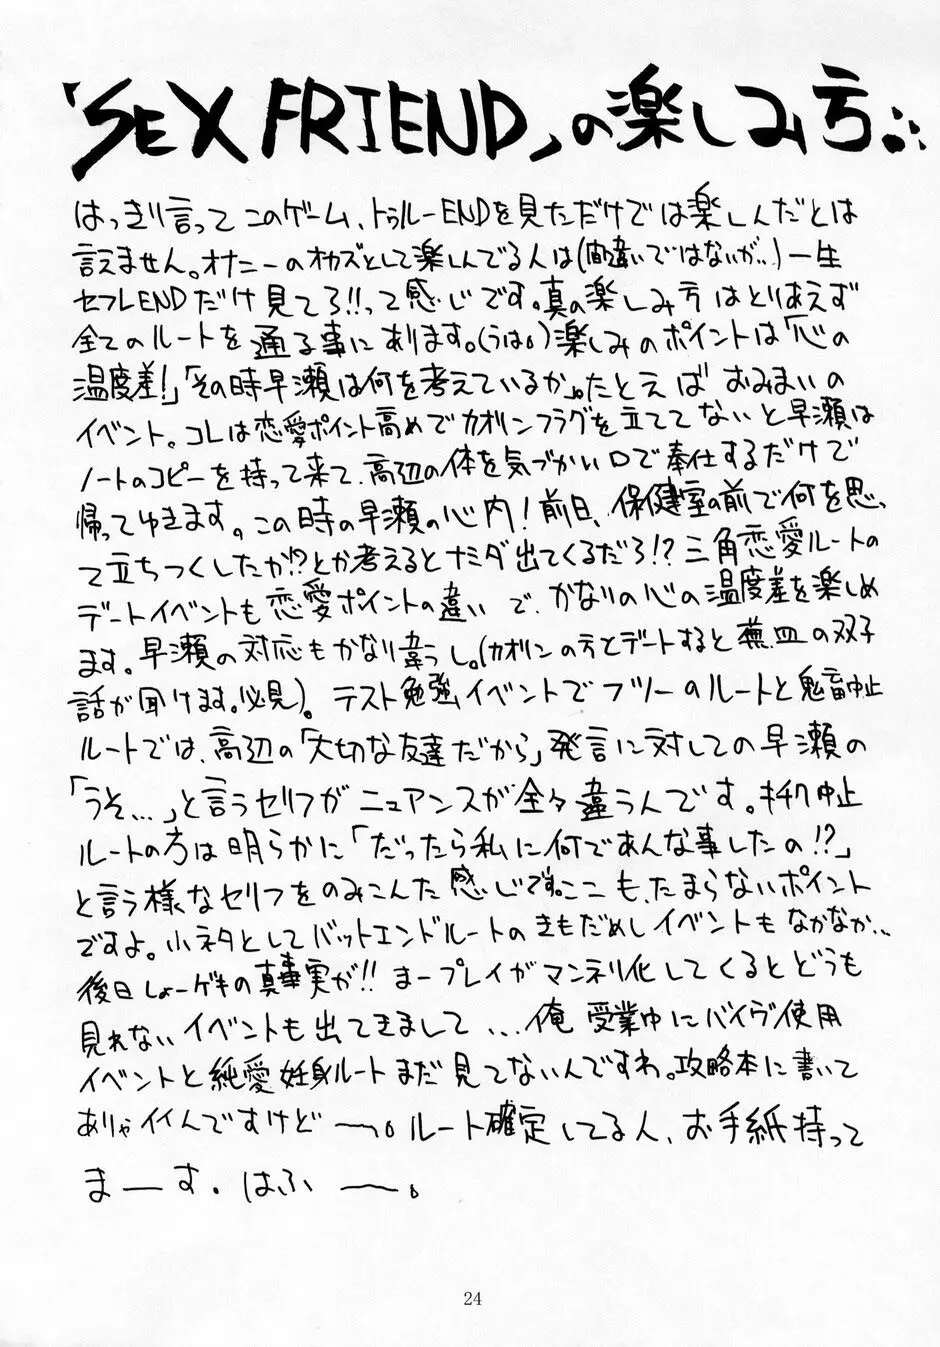 「SEX FRIEND」の楽しみ方。
はっきり言ってこのゲーム、トゥルーENDを見ただけでは楽しんだとは
言えません。オナニーのオカズとして楽しんでる人は(間違いではないが…)一生
セフレENDだけ見てろ!!って感じです。真の楽しみ方はとりあえず
全てのルートを通る事にあります。(うは。)楽しみのポイントは「心の
温度差!」「その時早瀬は何を考えているか」。たとえば おみまいの
イベント。コレは恋愛ポイント高めでカオリンフラグを立ててないと早瀬は
ノートのコピーを持って来て、高辺の体を気づかい口で奉仕するだけで
帰ってゆきます。この時の早瀬の心内!前日、保健室の前で何を思っ
て立ちつくしたか!?とか考えるとナミダ出てくるだろ!?三角恋愛ルートの
デートイベントも恋愛ポイントの違いで、かなりの心の温度差を楽しめ
ます。早瀬の対応もかなり違うし。(カオリンの方とデートすると 蕪皿の双子
話が聞けます。必見)。テスト勉強イベントでフツーのルートと鬼畜中止
ルートでは、高辺の「大切な友達だから」発言に対しての早瀬の
「うそ…」と言うセリフがニュアンスが全々違うんです。キチク中止
ルートの方は明らかに「だったら私に何であんな事したの!?」
と言う様なセリフをのみこんだ感じです。ここも、たまらないポイント
ですよ。小ネタとしてバットエンドルートのきもだめしイベントもなかなか…
後日しょーゲキの真事実が!!まープレイがマンネリ化してくるとどうも
見れないイベントも出てきまして…俺 受業中にバイヴ使用
イベントと純愛妊身ルートまだ見てないんですわ。攻略本に書いて
ありゃイイんですけど〜。ルート確定してる人、お手紙待って
まーす。はふ〜。
24